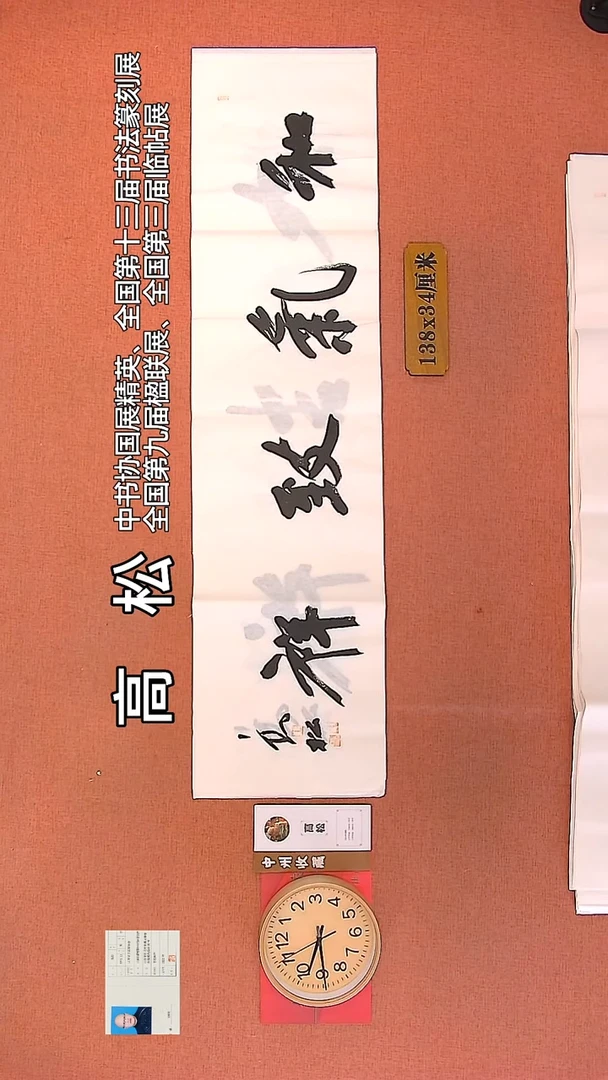 高 松
中书协国展精英、全国第十三届书法篆刻展
全国第九届楹联展、全国第三届临帖展
和氣致祥
高松
138x34厘米
高松
中州收藏
12
1
2
3
4
5
6
7
8
9
10
11